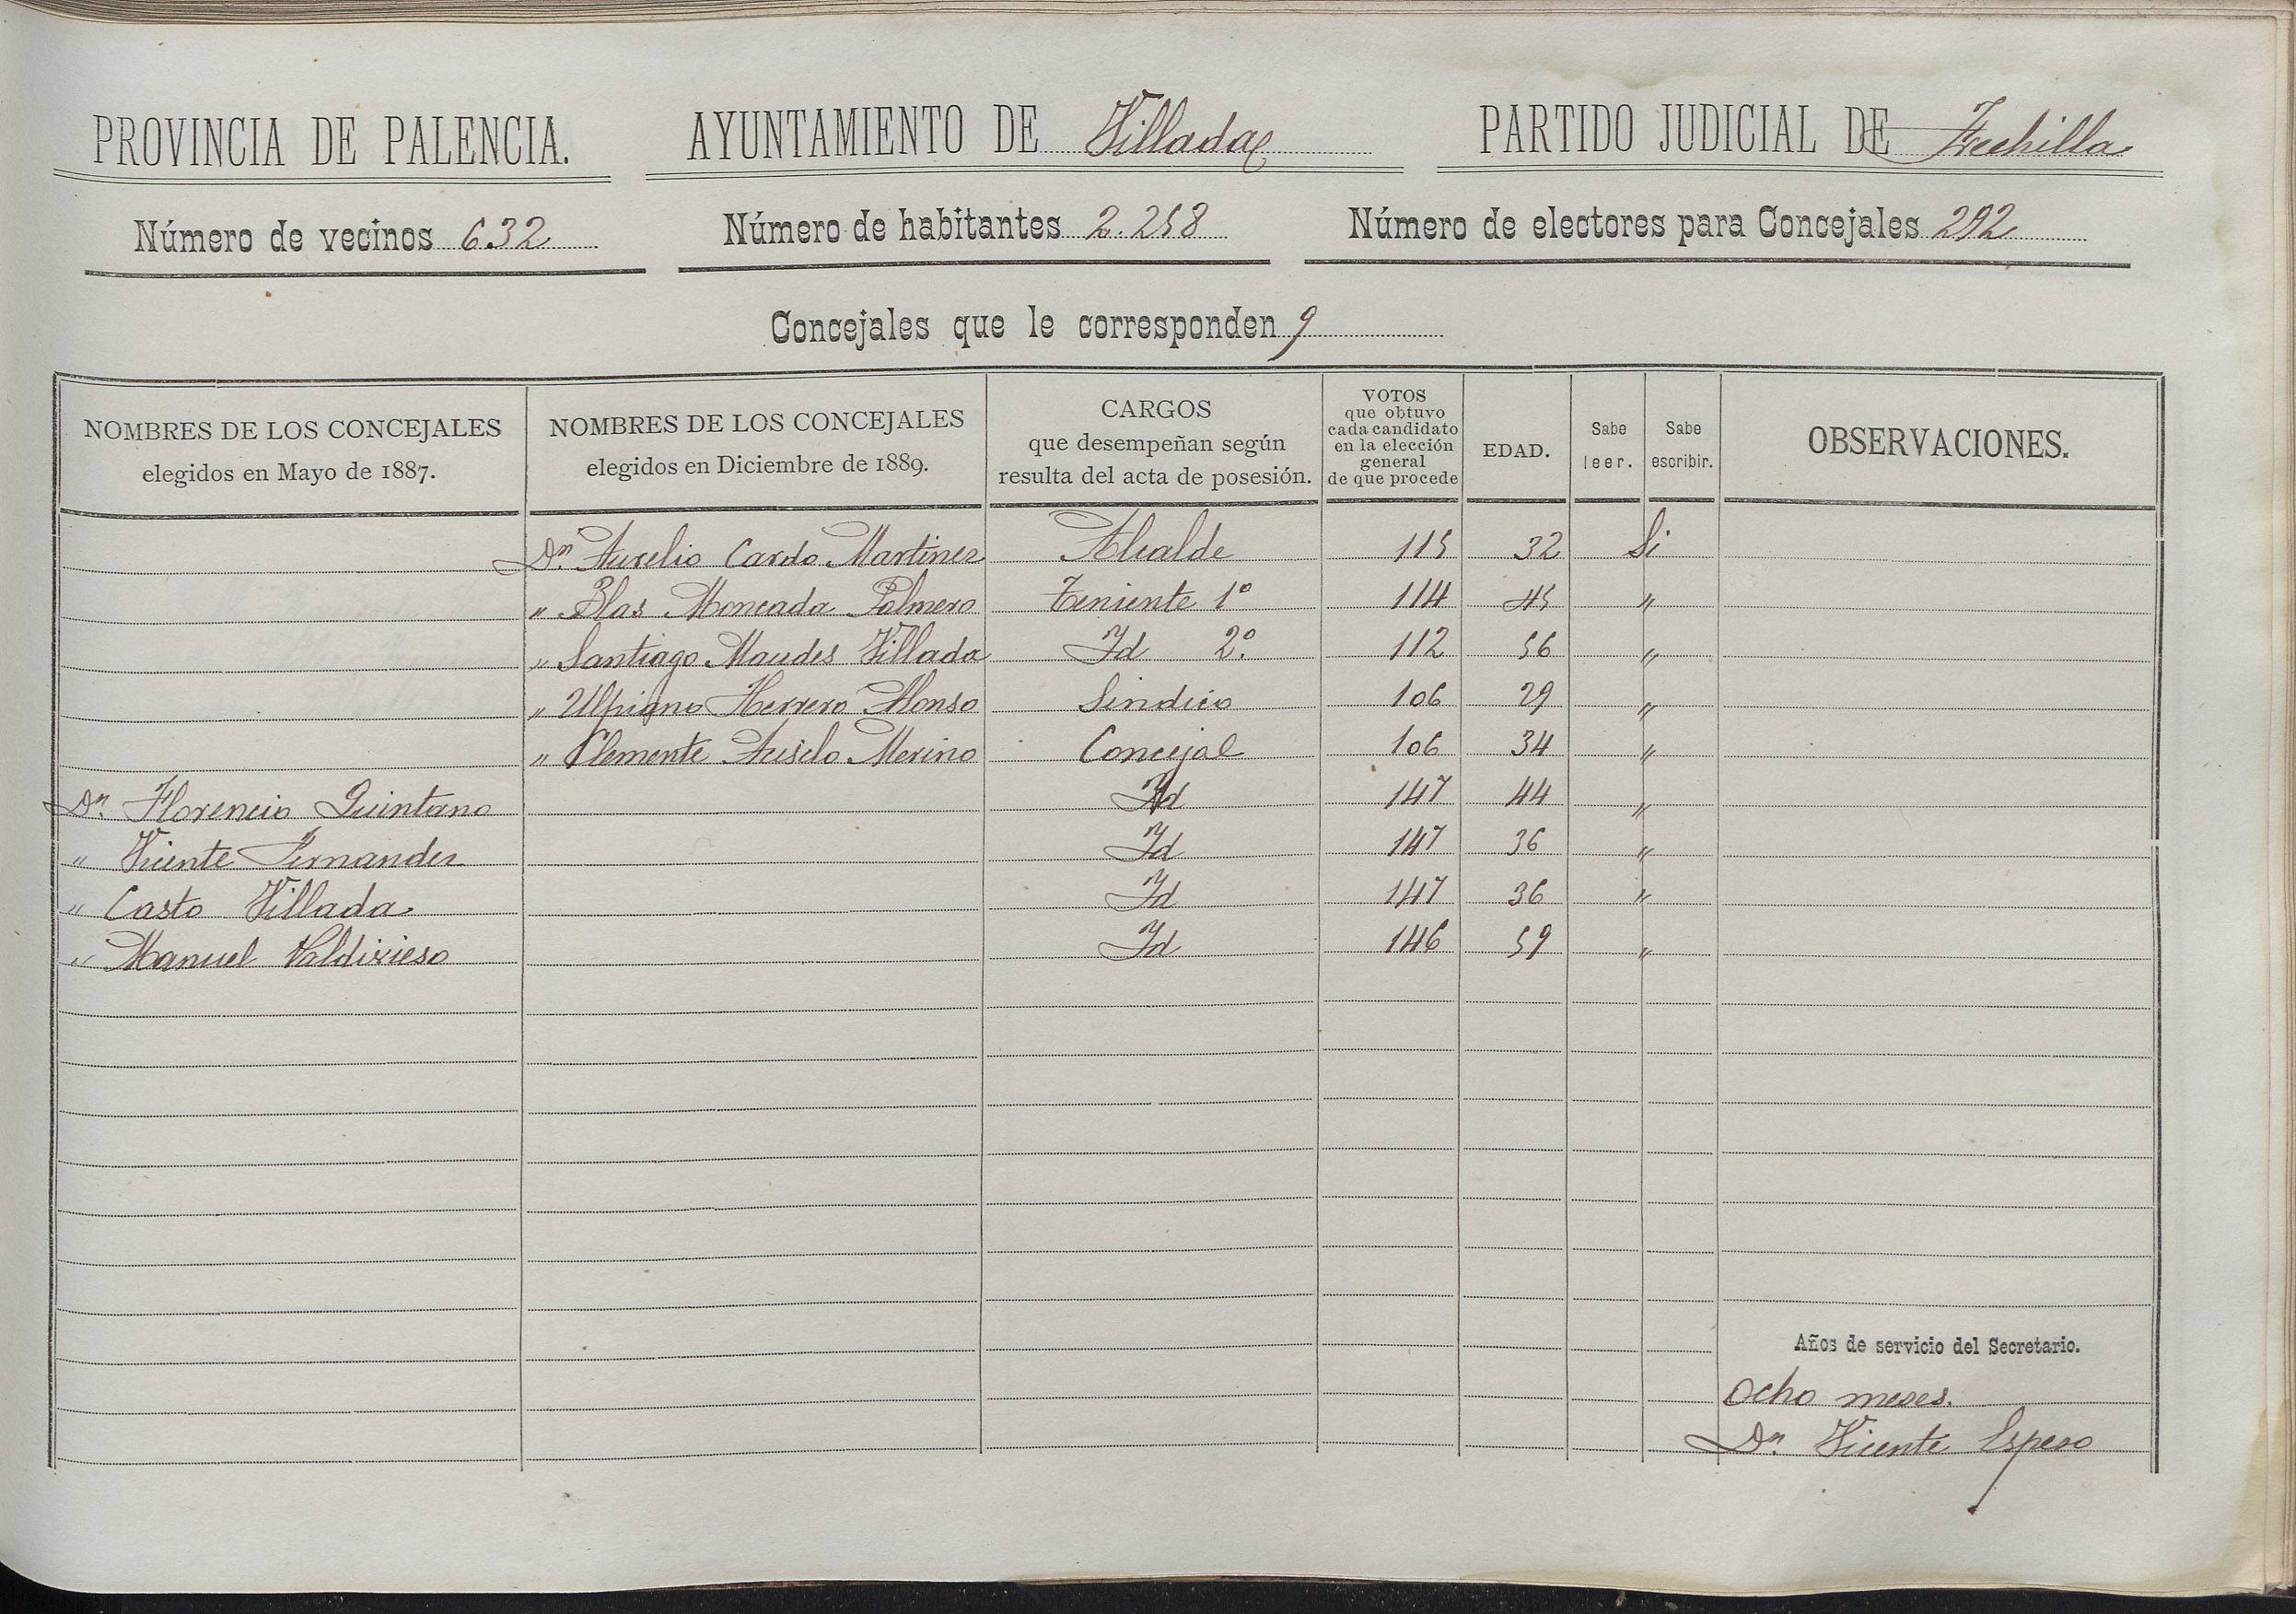 PROVINCIA DE PALENCIA. AYUNTAMIENTO DE Villada PARTIDO JUDICIAL DE Frechilla
Número de vecinos 632 Número de habitantes 2.258 Número de electores para Concejales 292
Concejales que le corresponden 9
NOMBRES DE LOS CONCEJALES
elegidos en Mayo de 1887.
NOMBRES DE LOS CONCEJALES
elegidos en Diciembre de 1889.
CARGOS
que desempeñan según
resulta del acta de posesión.
VOTOS
que obtuvo
cada candidato
en la elección
general
de que procede
EDAD.
Sabe
leer.
Sabe
escribir.
OBSERVACIONES.
Dn. Aurelio Cardo Martinez Alcalde 115 32 Si
" Blas Moncada Palmero Teniente 1º 114 45 "
" Santiago Maudes Villada Id 2º. 112 56 "
" Ulpiano Herrero Alonso Sindico 106 29 "
" Clemente Merino Concejal 106 34 "
Dn. Florencio Quintano Id 147 44 "
" Vicente Fernandez Id 147 36 "
" Casto Villada Id 147 36 "
" Manuel Valdivieso Id 146 59 "
Años de servicio del Secretario.
Ocho meses.
Dn. Vicente Espeso